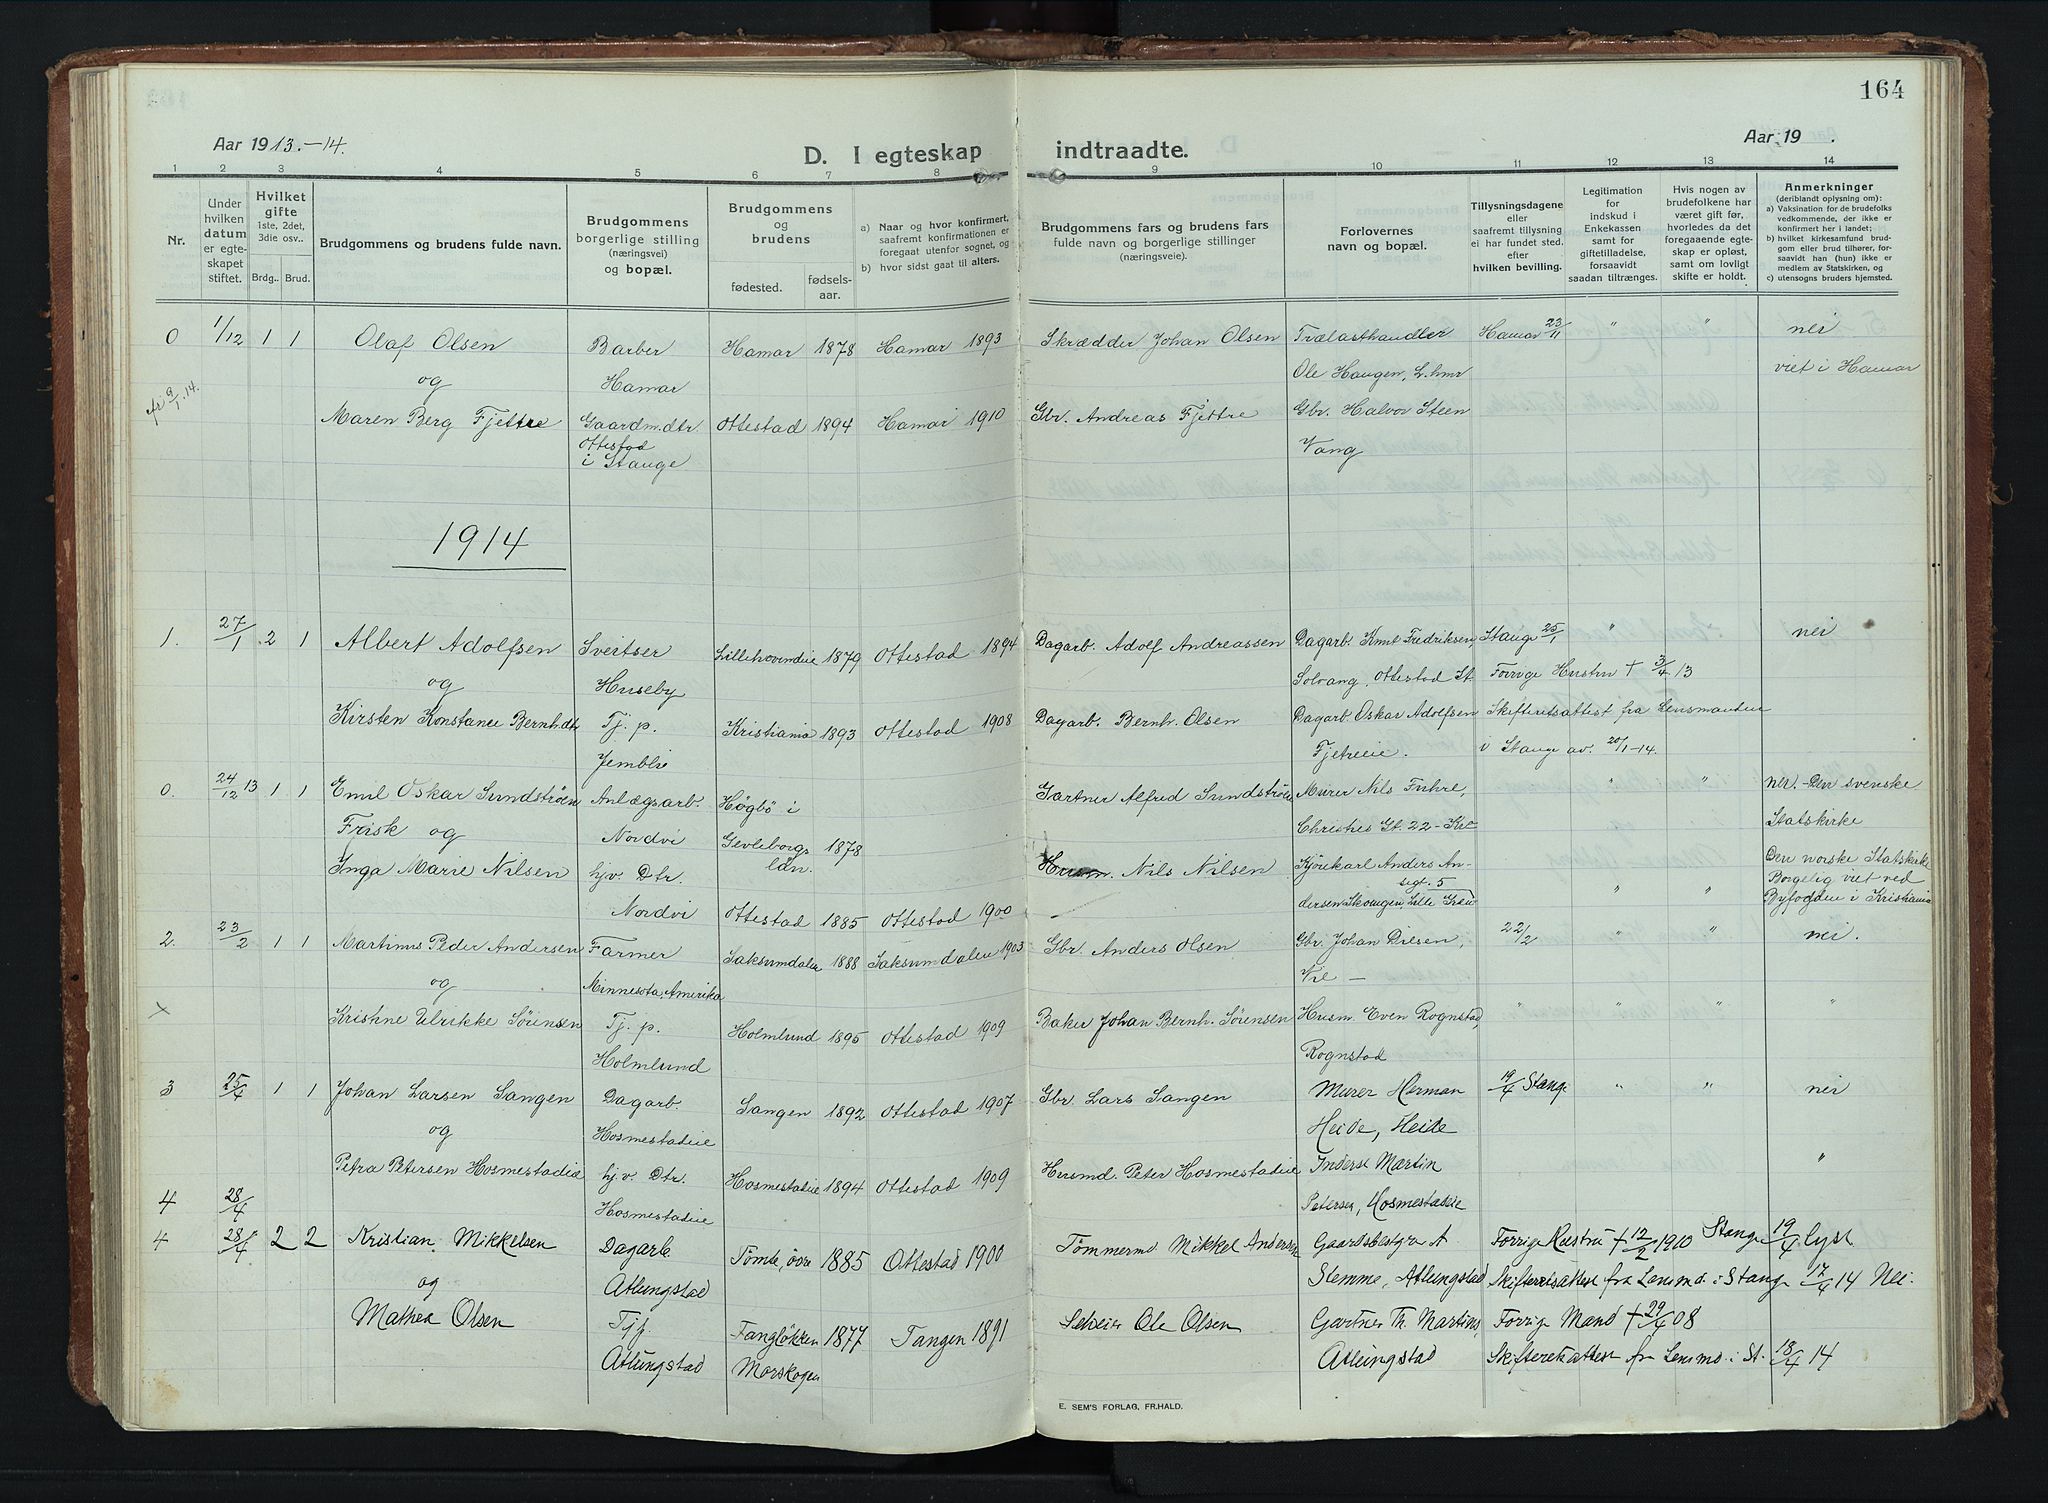 164
Aar 1913.-14.
D. I egteskap indtraadte.
Aar 19 .
1 2 3 4 5 6 7 8 9 10 11 12 13 14
Nr.
Under hvilken datum er egteskapet stiftet.
Hvilket gifte 1ste, 2det, 3die osv..
Brdg.. Brud.
Brudgommens og brudens fulde navn.
Brudgommens borgerlige stilling (næringsvei) og bopæl.
Brudgommens og brudens
fødested. fødselsaar.
a) Naar og hvor konfirmert, saafremt konfirmationen er foregaat utenfor sognet, og
b) hvor sidst gaat til alters.
Brudgommens fars og brudens fars fulde navn og borgerlige stillinger (næringsveie).
Forlovernes navn og bopæl.
Tillysningsdagene eller saafremt tillysning ei har fundet sted. efter hvilken bevilling.
Legitimation for indskud i Enkekassen samt for giftetilladelse, forsaavidt saadan tiltrænges.
Hvis nogen av brudefolkene har været gift før, hvorledes da det foregaaende egteskap er opløst, samt om lovligt skifte er holdt.
Anmerkninger (deriblandt oplysning om):
a) Vaksination for de brudefolks vedkommende, der ikke er konfirmert her i landet;
b) hvilket kirkesamfund brudgom eller brud tilhører, forsaavidt han (hun) ikke er medlem av Statskirken, og
c) utensogns bruders hjemsted.
0 1/12 1 1 Olaf Olsen Barber Hamar 1878 Hamar 1893 Skrædder Johan Olsen Trælasthandler Hamar 23/11 " " nei
og Hamar Ole Haugen, L.hmr viet i Hamar
fr 9/1.14.
Maren Berg Fjettre Gaardm.dtr. Ottestad 1894 Hamar 1910 Gbr. Andreas Fjettre Gbr. Halvor Steen
Ottestad i Stange Vang
1914
1. 27/1 2 1 Albert Adolfsen Sveitser Lillehovindeie 1879 Ottestad 1894 Dagarb. Adolf Andreassen Dagarb. Knut Fredriksen, Stange 25/1 " nei
og Huseby Solvang, Ottestad St. Forrige Hustru + 3/4 13
Kirsten Konstance Bernh.dtr Tj. p. Kristiania 1893 Ottestad 1908 Dagarb. Bernh. Olsen Dagarb. Oskar Adolfsen Skifteretsattest fra Lensmanden
Jemblie Fjetreeie. i Stange av. 20/1-14.
0. 24/12 13 1 1 Emil Oskar Sundströen Anlægsarb. Högbö i Gartner Alfred Sundströen Murer Nils Fuhre, " " nei. - Den svenske
Frisk og Nordvi Gevleborgs 1878 Christies Gt. 22 - Kra Statskirke
Inga Marie Nilsen hjv. Dtr. län. Husm. Nils Nilsen Kjørekarl Anders An- Den norske Statskirke
segt. 5 Borgelig viet ved
Nordvi Ottestad 1885 Ottestad 1900 dersen Skougen Lille " " Byfogden i Kristiania
2. 23/2 1 1 Martinus Peder Andersen Farmer Saksumdalen 1888 Saksumdalen 1903 Gbr. Anders Olsen Gbr. Johan 22/2 " " nei.
og Minnesota, Amerika
x Kristine Ulrikke Sörensen Tj. p. Holmlund 1895 Ottestad 1909 Baker Johan Bernh. Sørensen Husm. Even Rognstad, " " " "
Holmlund Rognstad
3 25/4 1 1 Johan Larsen Sangen Dagarb. Sangen 1892 Ottestad 1907 Gbr. Lars Sangen Murer Herman 19/4 Stange " " nei
og Hosmestadeie Heide, Heide
Petra Petersen Hosmestadeie hjv. Dtr. Hosmestadeie 1894 Ottestad 1909 Husmd. Peter Hosmestadeie Inderst Martin "
4 28/4 Hosmestadeie Petersen, Hosmestadeie
4 28/4 2 2 Kristian Mikkelsen Dagarb Tomte, övre 1885 Ottestad 1900 Tömmermd Mikkel Andersen Gaardsbestyrer A Forrige Kæstru + 12/2 1910 Stange 19/4 lyst.
og Atlungstad Stemme, Atlungstad Skifteretsattest fra Lensmd. i Stang 17/4 14 Nei.
Mathea Olsen Tjp. Fanglökken 1877 Tangen 1891 Selveier Ole Olsen Gartner Th. Martins, Forrige Mand + 29/4 08
Atlungstad Morskogen Atlungstad Skifteretsattest fra Lensmd. i St. 18/4 14
E. SEM'S FORLAG, FR.HALD.